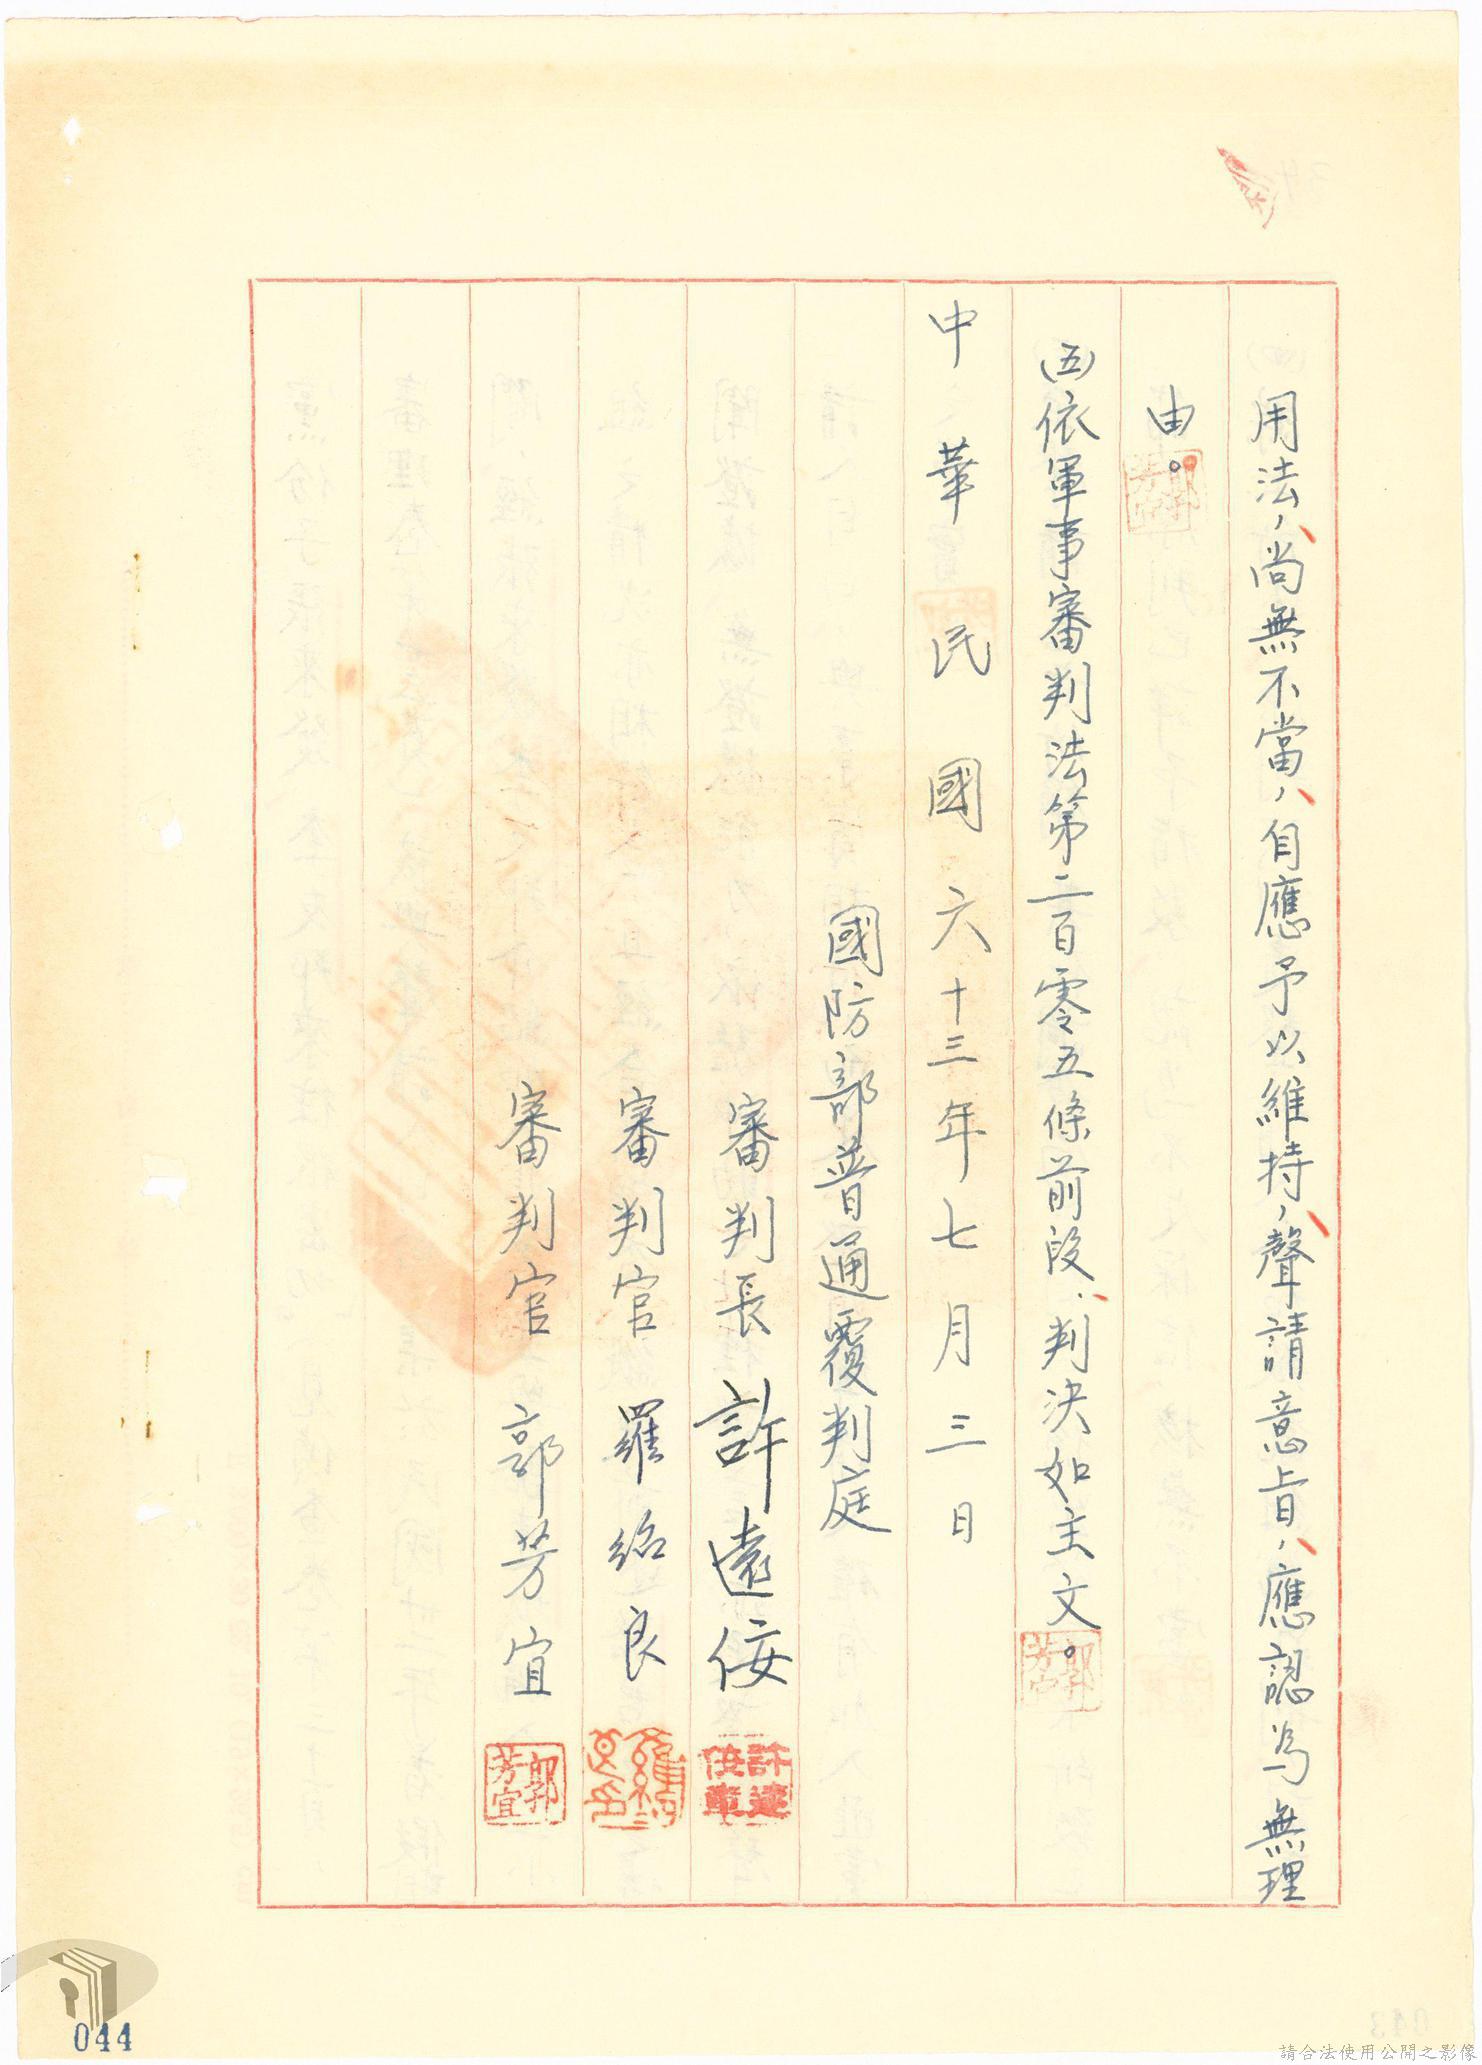 用法，尚無不當，自應予以維持，聲請意旨，應認為無理
由。
㈤依軍事審判法第二百零五條前段：判決如主文。
中華民國六十三年七月三日
國防部普通覆判庭
審判長 許遠佞
審判官 羅紹良
審判官 郭芳宜
郭芳宜
044
請合法使用公開之影像